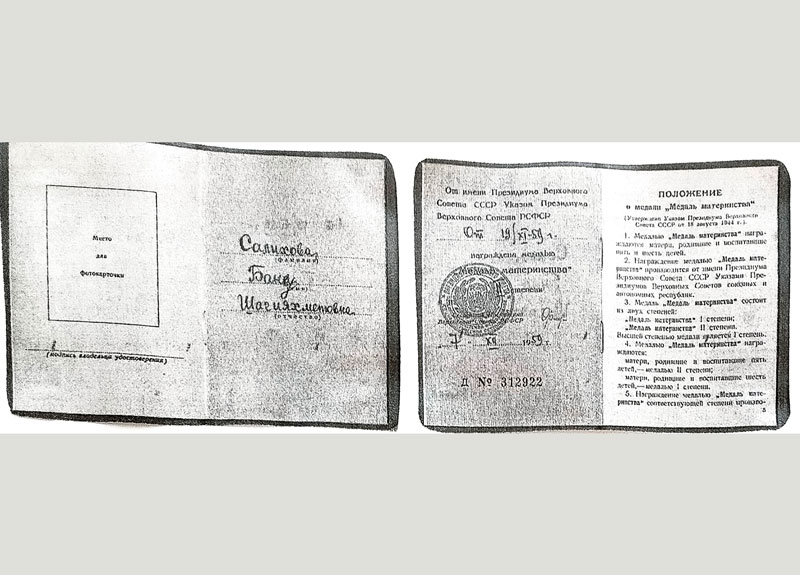 Место
для
фотокарточки
(подпись владельца удостоверения)
Салихова
(фамилия)
Бану
(имя)
Шагияхметовна
(отчество)
От имени Президиума Верховного
Совета СССР Указом Президиума
Верховного Совета РСФСР
От 19/XI-59 г.
награждена медалью
„Медаль материнства“
степени
7 XII 1959 г.
Д № 312922
ПОЛОЖЕНИЕ
о медали „Медаль материнства“
(Утверждено Указом Президиума Верховного
Совета СССР от 18 августа 1944 г.).
1. Медалью „Медаль материнства“ награ-
ждаются матери, родившие и воспитавшие
пять и шесть детей.
2. Награждение медалью „Медаль мате-
ринства“ производится от имени Президиума
Верховного Совета СССР Указами Пре-
зидиумов Верховных Советов союзных и
автономных республик.
3. Медаль „Медаль материнства“ состоит
из двух степеней:
„Медаль материнства“ I степени;
„Медаль материнства“ II степени.
Высшей степенью медали является I степень.
4. Медалью „Медаль материнства“ награ-
ждаются:
матери, родившие и воспитавшие пять
детей,—медалью II степени;
матери, родившие и воспитавшие шесть
детей,—медалью I степени.
5. Награждение медалью „Медаль мате-
ринства“ соответствующей степени произво-
5